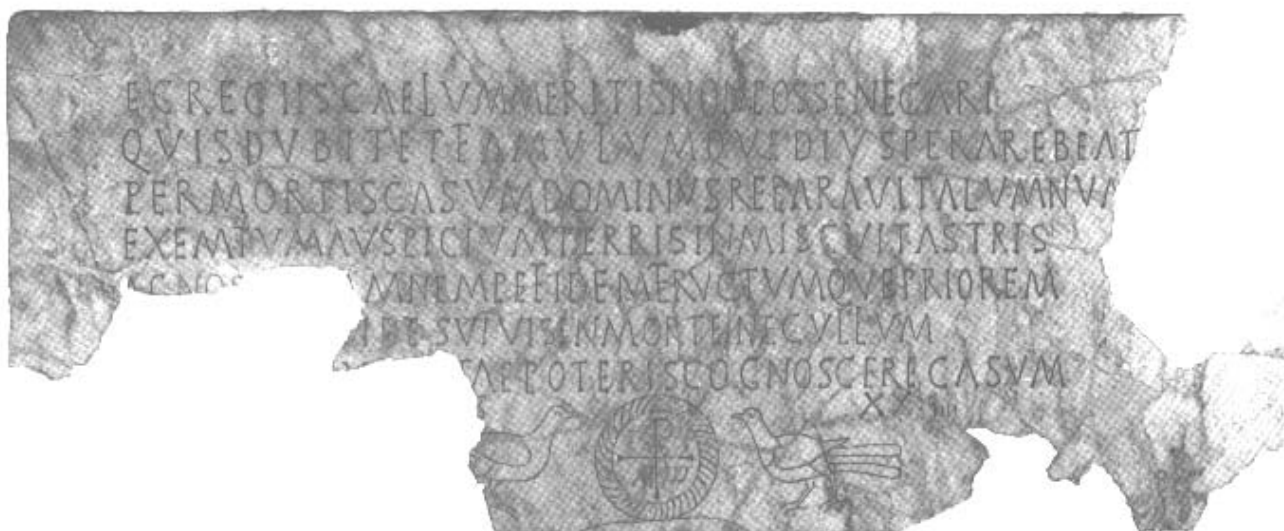 EGREGIISCAELVMMERITISNONPOSSENEGARI
QVISDVBITETFAMVLVMQVEDIVSPERAREBEAT
PERMORTISCASVMDOMINVSREPARAVITALVMNVM
EXEMTVMAVSPICIVMTERRISINMISCVITASTRIS
GNOS MNEMPEFIDEMFRVCTVMQVEPRIOREM
IDESVIVISINMORTENECVLLVM
POTERISCOGNOSCERECASVM